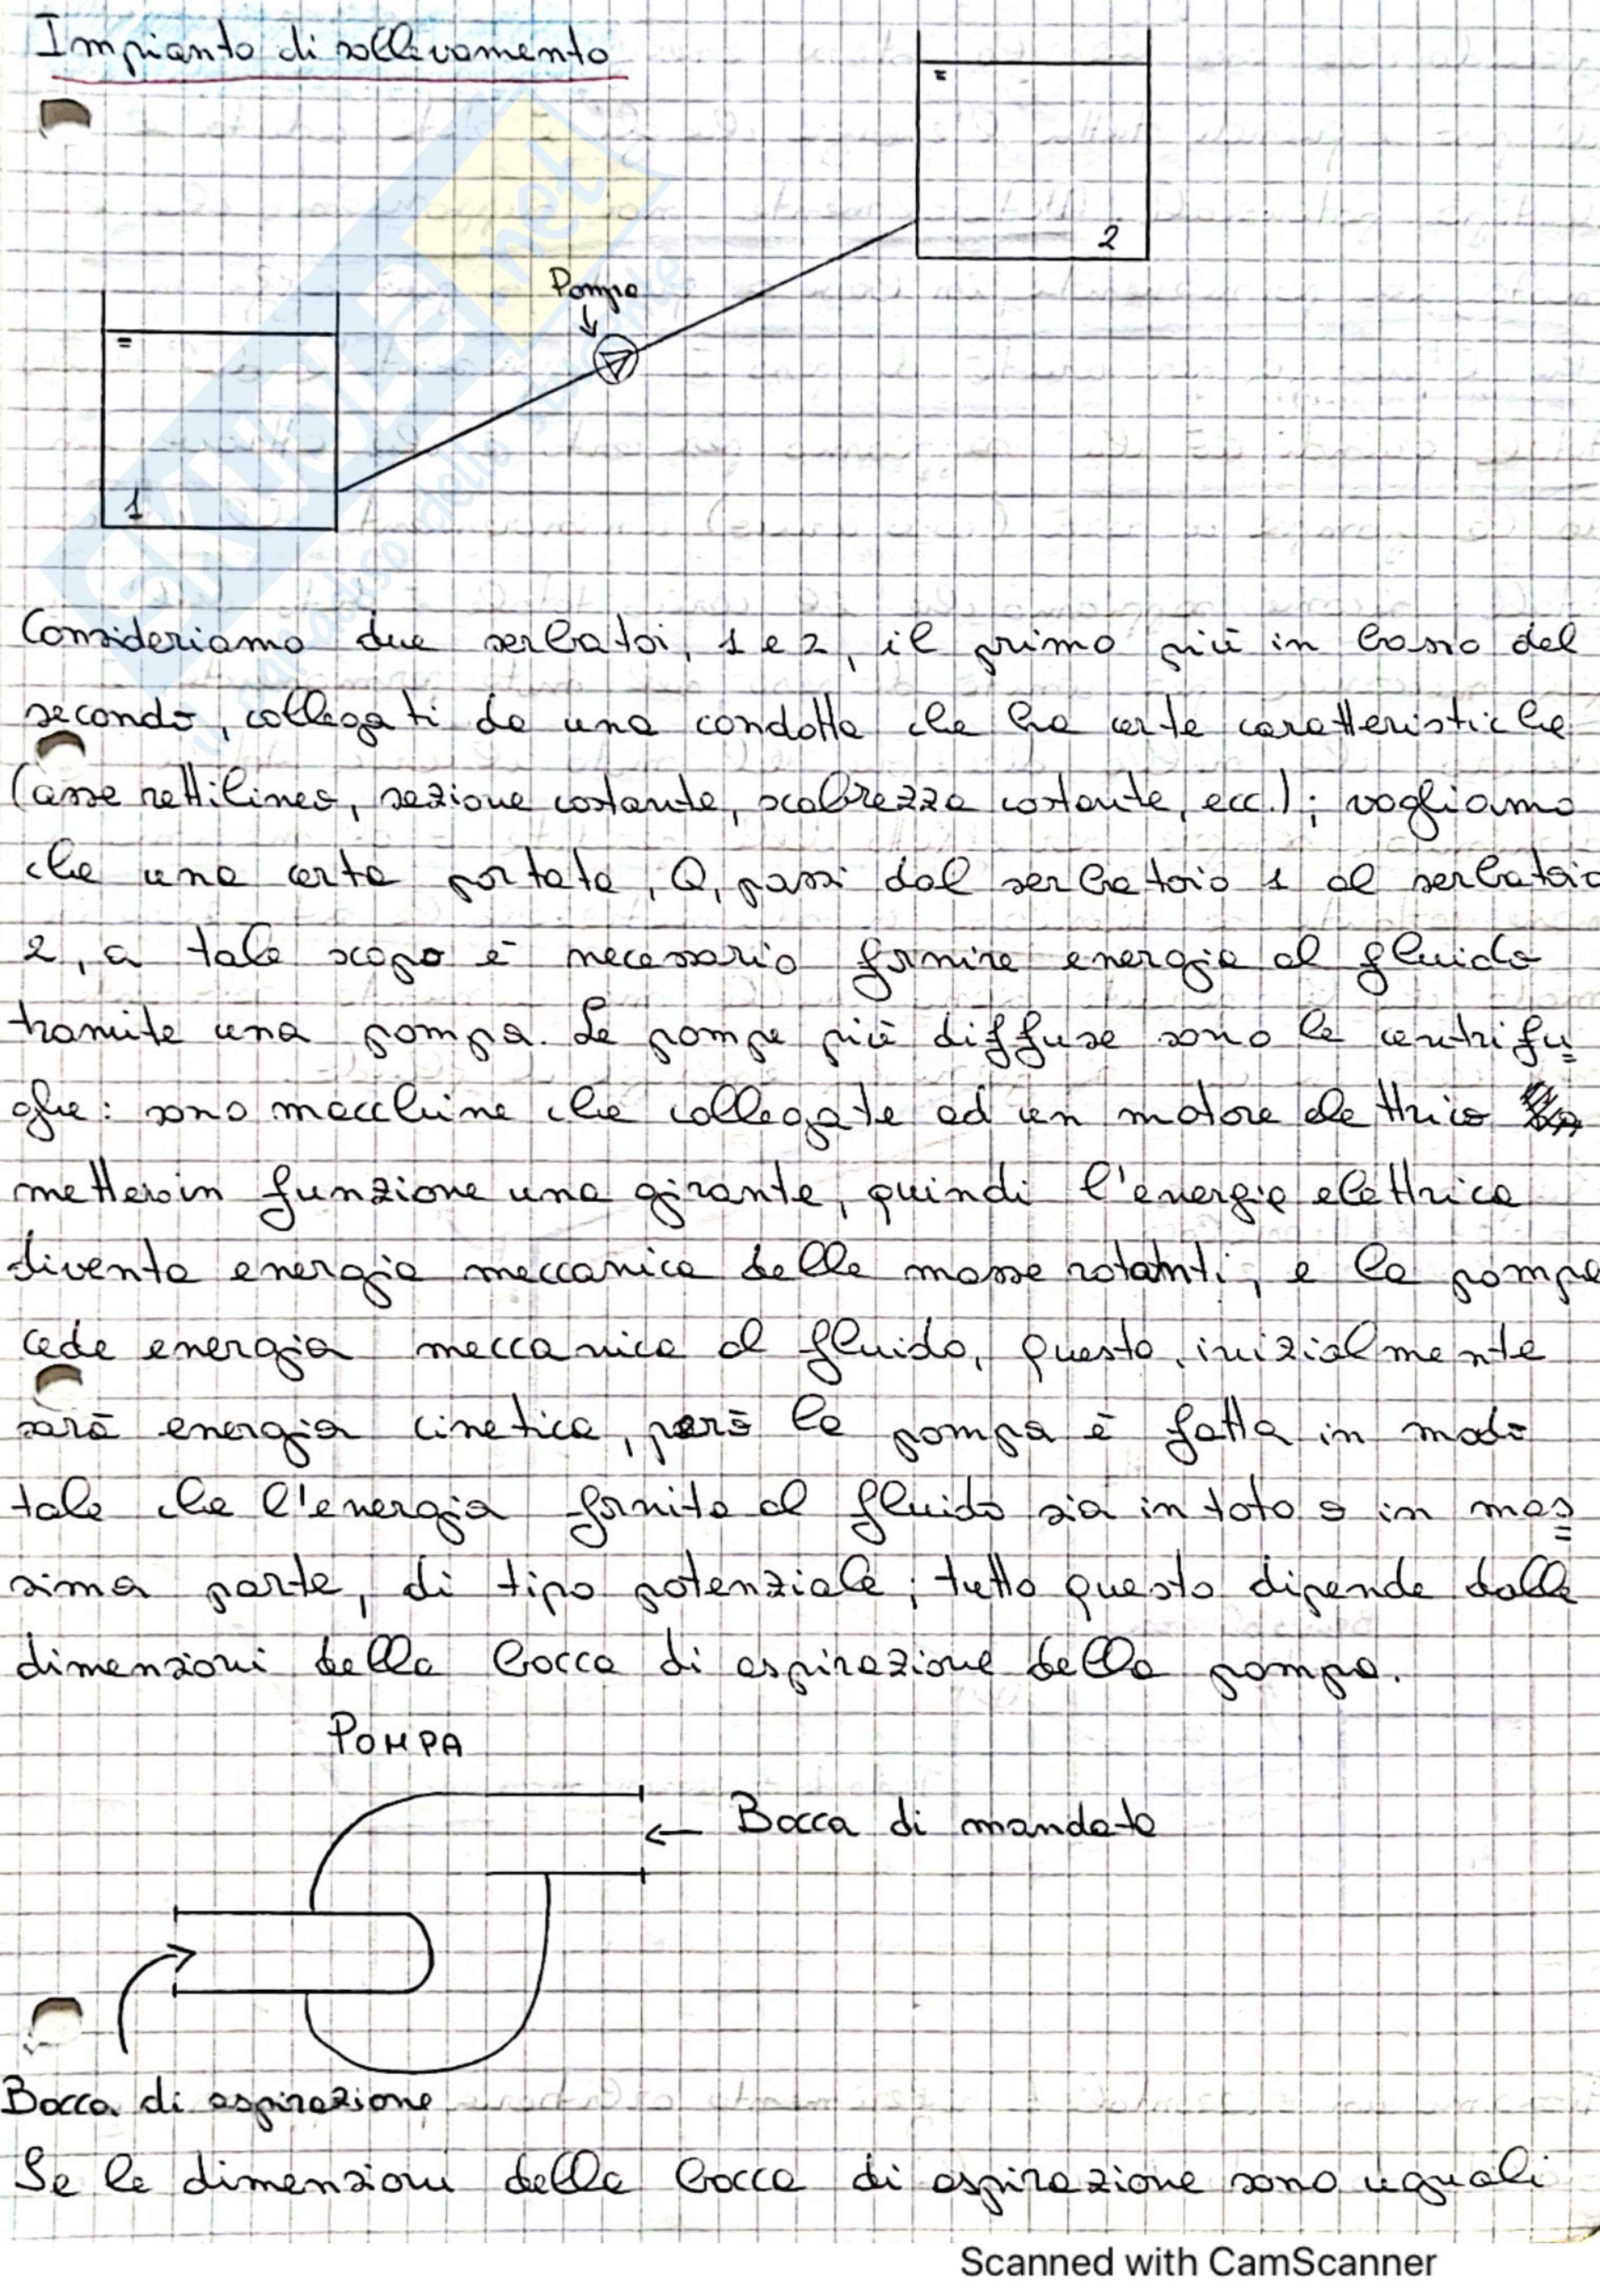 Impianto di sollevamento
2
Pompa
1
Consideriamo due serbatoi, 1 e 2, il primo più in basso del
secondo, collegati da una condotta che ha certe caratteristiche
(asse rettilineo, sezione costante, scabrezza costante, ecc.); vogliamo
che una certa portata, Q, passi dal serbatoio 1 al serbatoio
2, a tale scopo è necessario fornire energia al fluido
tramite una pompa. Le pompe più diffuse sono le centrifu=
ghe: sono macchine che collegate ad un motore elettrico
metterein funzione una girante, quindi l'energia elettrica
diventa energia meccanica delle masse rotanti, e la pompa
cede energia meccanica al fluido, questa, inizialmente
sarà energia cinetica, però la pompa è fatta in modo
tale che l'energia fornita al fluido sia in toto o in mas=
sima parte, di tipo potenziale; tutto questo dipende dalle
dimensioni della bocca di aspirazione della pompa.
POMPA
← Bocca di mandata
Bocca di aspirazione
Se le dimensioni della bocca di aspirazione sono uguali
Scanned with CamScanner
SKUOLA.net
il paradiso dello studente